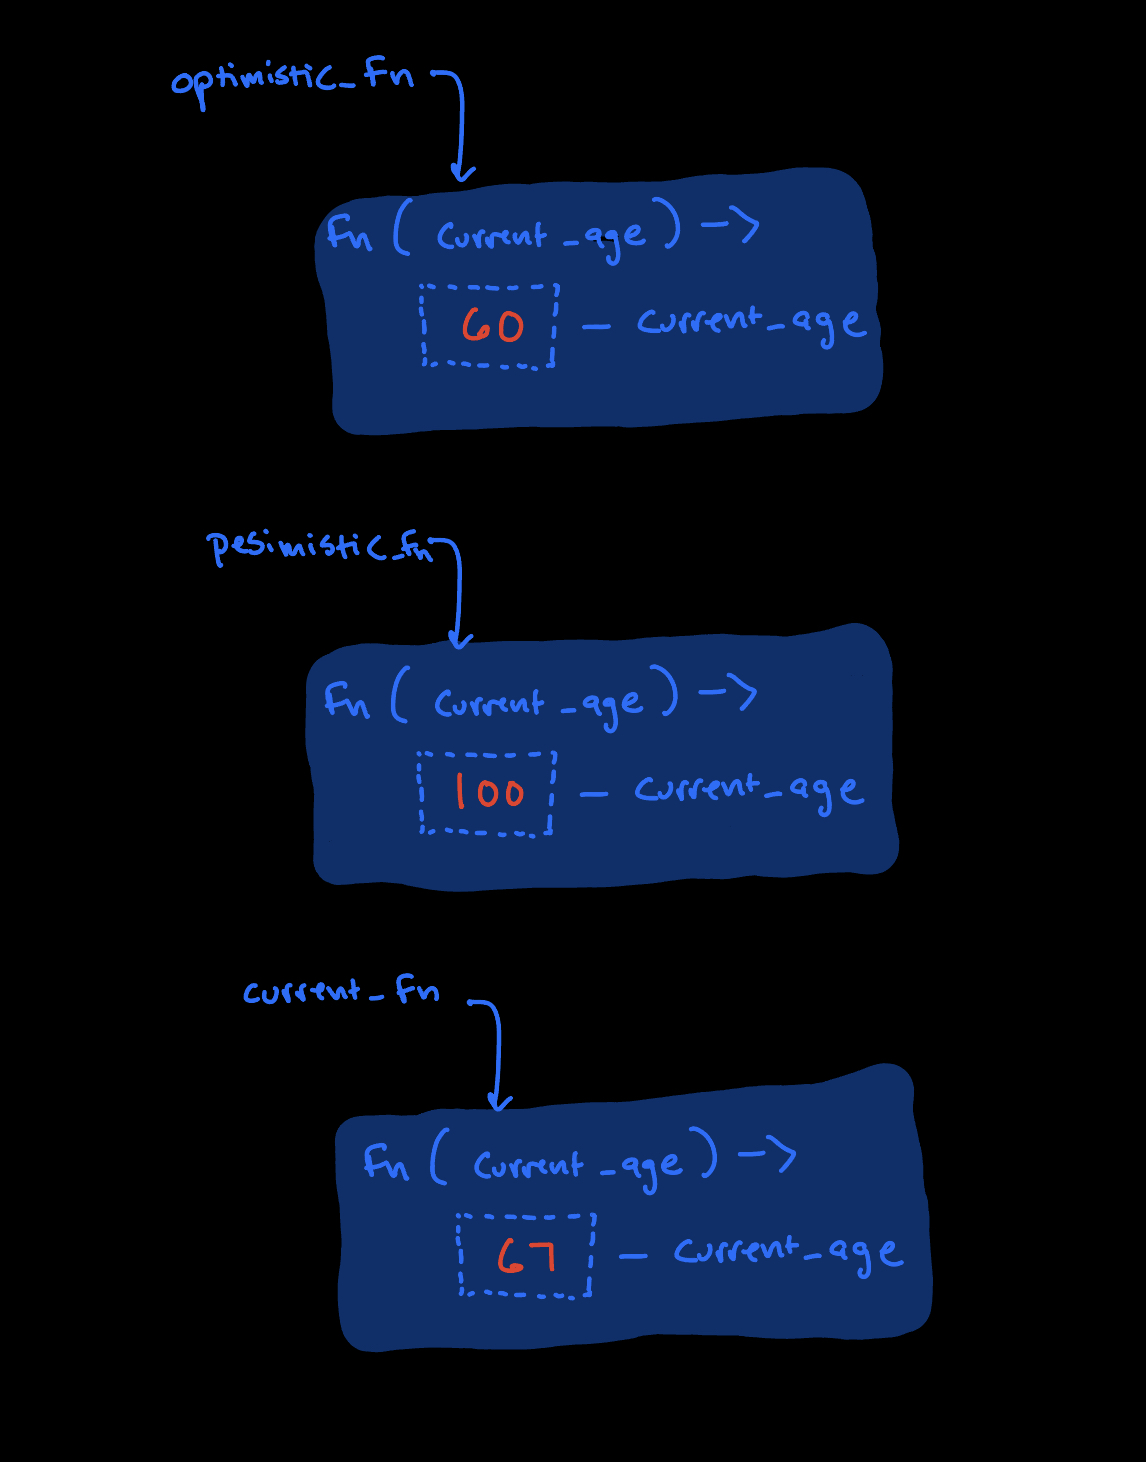 optimistic_fn
fn ( current_age ) ->
60 - current_age
pesimistic_fn
fn ( current_age ) ->
100 - current_age
current_fn
fn ( current_age ) ->
67 - current_age